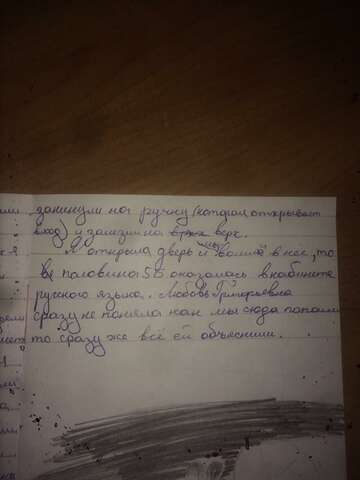 закинули на ручку (которая открывает
вход) и залезли на верх.
Я открыла дверь и мы вошли в неё, то
половина 5Б оказалась в кабинете
русского языка. Любовь Григорьевна
сразу не поняла как мы сюда попали
то сразу же всё ей объяснили.